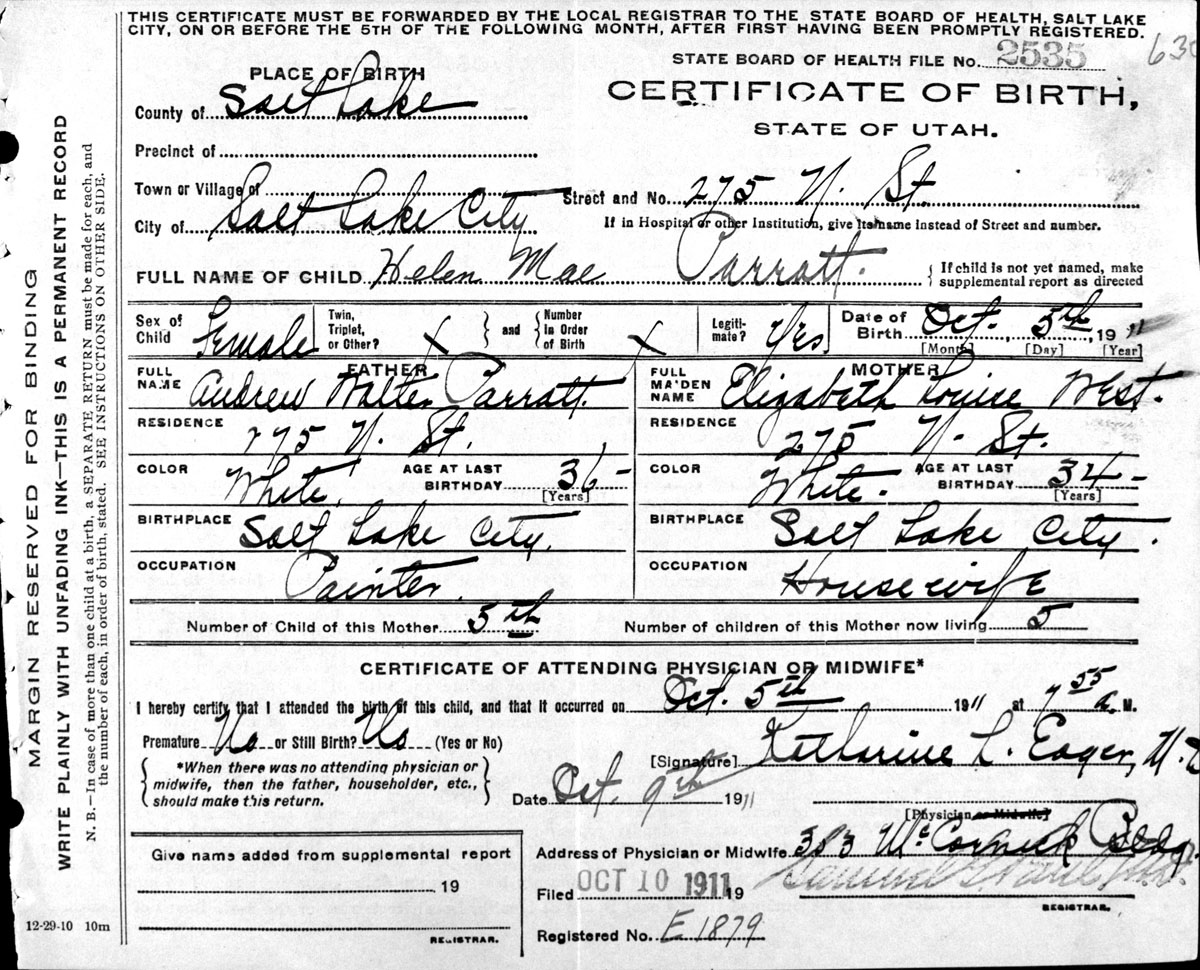 THIS CERTIFICATE MUST BE FORWARDED BY THE LOCAL REGISTRAR TO THE STATE BOARD OF HEALTH, SALT LAKE
CITY, ON OR BEFORE THE 5TH OF THE FOLLOWING MONTH, AFTER FIRST HAVING BEEN PROMPTLY REGISTERED.
STATE BOARD OF HEALTH FILE No. 2535
PLACE OF BIRTH
CERTIFICATE OF BIRTH,
County of Salt Lake
STATE OF UTAH.
Precinct of
Town or Village of
Street and No. 275 N. St.
City of Salt Lake City
If in Hospital or other Institution, give its name instead of Street and number.
FULL NAME OF CHILD Helen Mae Parratt. { If child is not yet named, make supplemental report as directed
Sex of Child Female Twin, Triplet, or Other? X } and { Number In Order of Birth X Legiti-mate? Yes Date of Birth Oct. 5th, 1911
[Month] [Day] [Year]
FATHER MOTHER
FULL NAME Andrew Walter Parratt. FULL MAIDEN NAME Elizabeth Louise West.
RESIDENCE 275 N. St. RESIDENCE 275 N. St.
COLOR White. AGE AT LAST BIRTHDAY 36- [Years] COLOR White. AGE AT LAST BIRTHDAY 34- [Years]
BIRTHPLACE Salt Lake City. BIRTHPLACE Salt Lake City.
OCCUPATION Painter. OCCUPATION Housewife
Number of Child of this Mother 5th Number of children of this Mother now living 5
CERTIFICATE OF ATTENDING PHYSICIAN OR MIDWIFE*
I hereby certify that I attended the birth of this child, and that it occurred on Oct. 5th 1911 at 7 55 a. M.
Premature No or Still Birth? No (Yes or No)
[Signature] Katharine L. Eager, M.D
{ *When there was no attending physician or
midwife, then the father, householder, etc.,
should make this return. }
Date Oct. 9th 1911
[Physician or Midwife]
Address of Physician or Midwife 383 McCornick Bldg.
Give name added from supplemental report
19
REGISTRAR.
Filed OCT 10 1911 19
REGISTRAR.
Registered No. E 1879
12-29-10 10m
MARGIN RESERVED FOR BINDING
WRITE PLAINLY WITH UNFADING INK—THIS IS A PERMANENT RECORD
N. B.—In case of more than one child at a birth, a SEPARATE RETURN must be made for each, and
the number of each, in order of birth, stated. SEE INSTRUCTIONS ON OTHER SIDE.